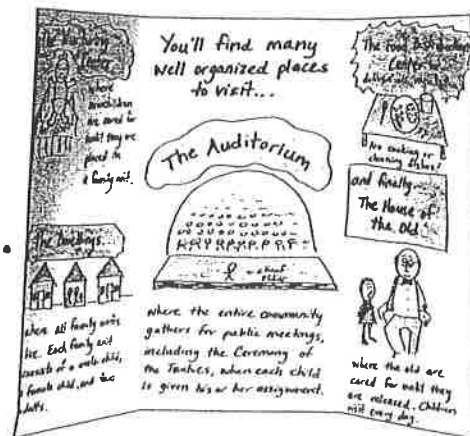 The Nurturing
Center
where
newchildren
are cared for
until they are
placed in
a family unit.
The Dwellings...
where all family units
live. Each family unit
consists of a male child,
a female child, and two
adults.
You'll find many
well organized places
to visit...
The Auditorium
where the entire community
gathers for public meetings,
including the Ceremony of
the Twelves, when each child
is given his or her assignment.
The Food Distribution
Center
No cooking or
cleaning dishes!
and finally...
The House of
the Old
where the old are
cared for until they
are released. Children
visit every day.